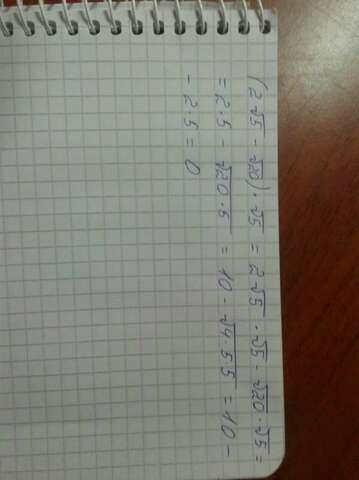 (2√5 - √20) · √5 = 2√5 · √5 - √20 · √5 =
= 2·5 - √20·5 = 10 - √4·5·5 = 10 -
- 2·5 = 0